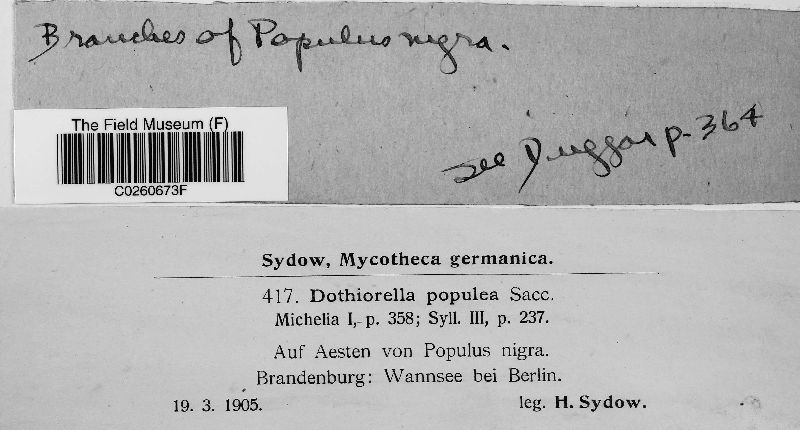 Branches of Populus nigra.
The Field Museum (F)
C0260673F
see Duggar p. 364
Sydow, Mycotheca germanica.
417. Dothiorella populea Sacc.
Michelia I, p. 358; Syll. III, p. 237.
Auf Aesten von Populus nigra.
Brandenburg: Wannsee bei Berlin.
19. 3. 1905. leg. H. Sydow.